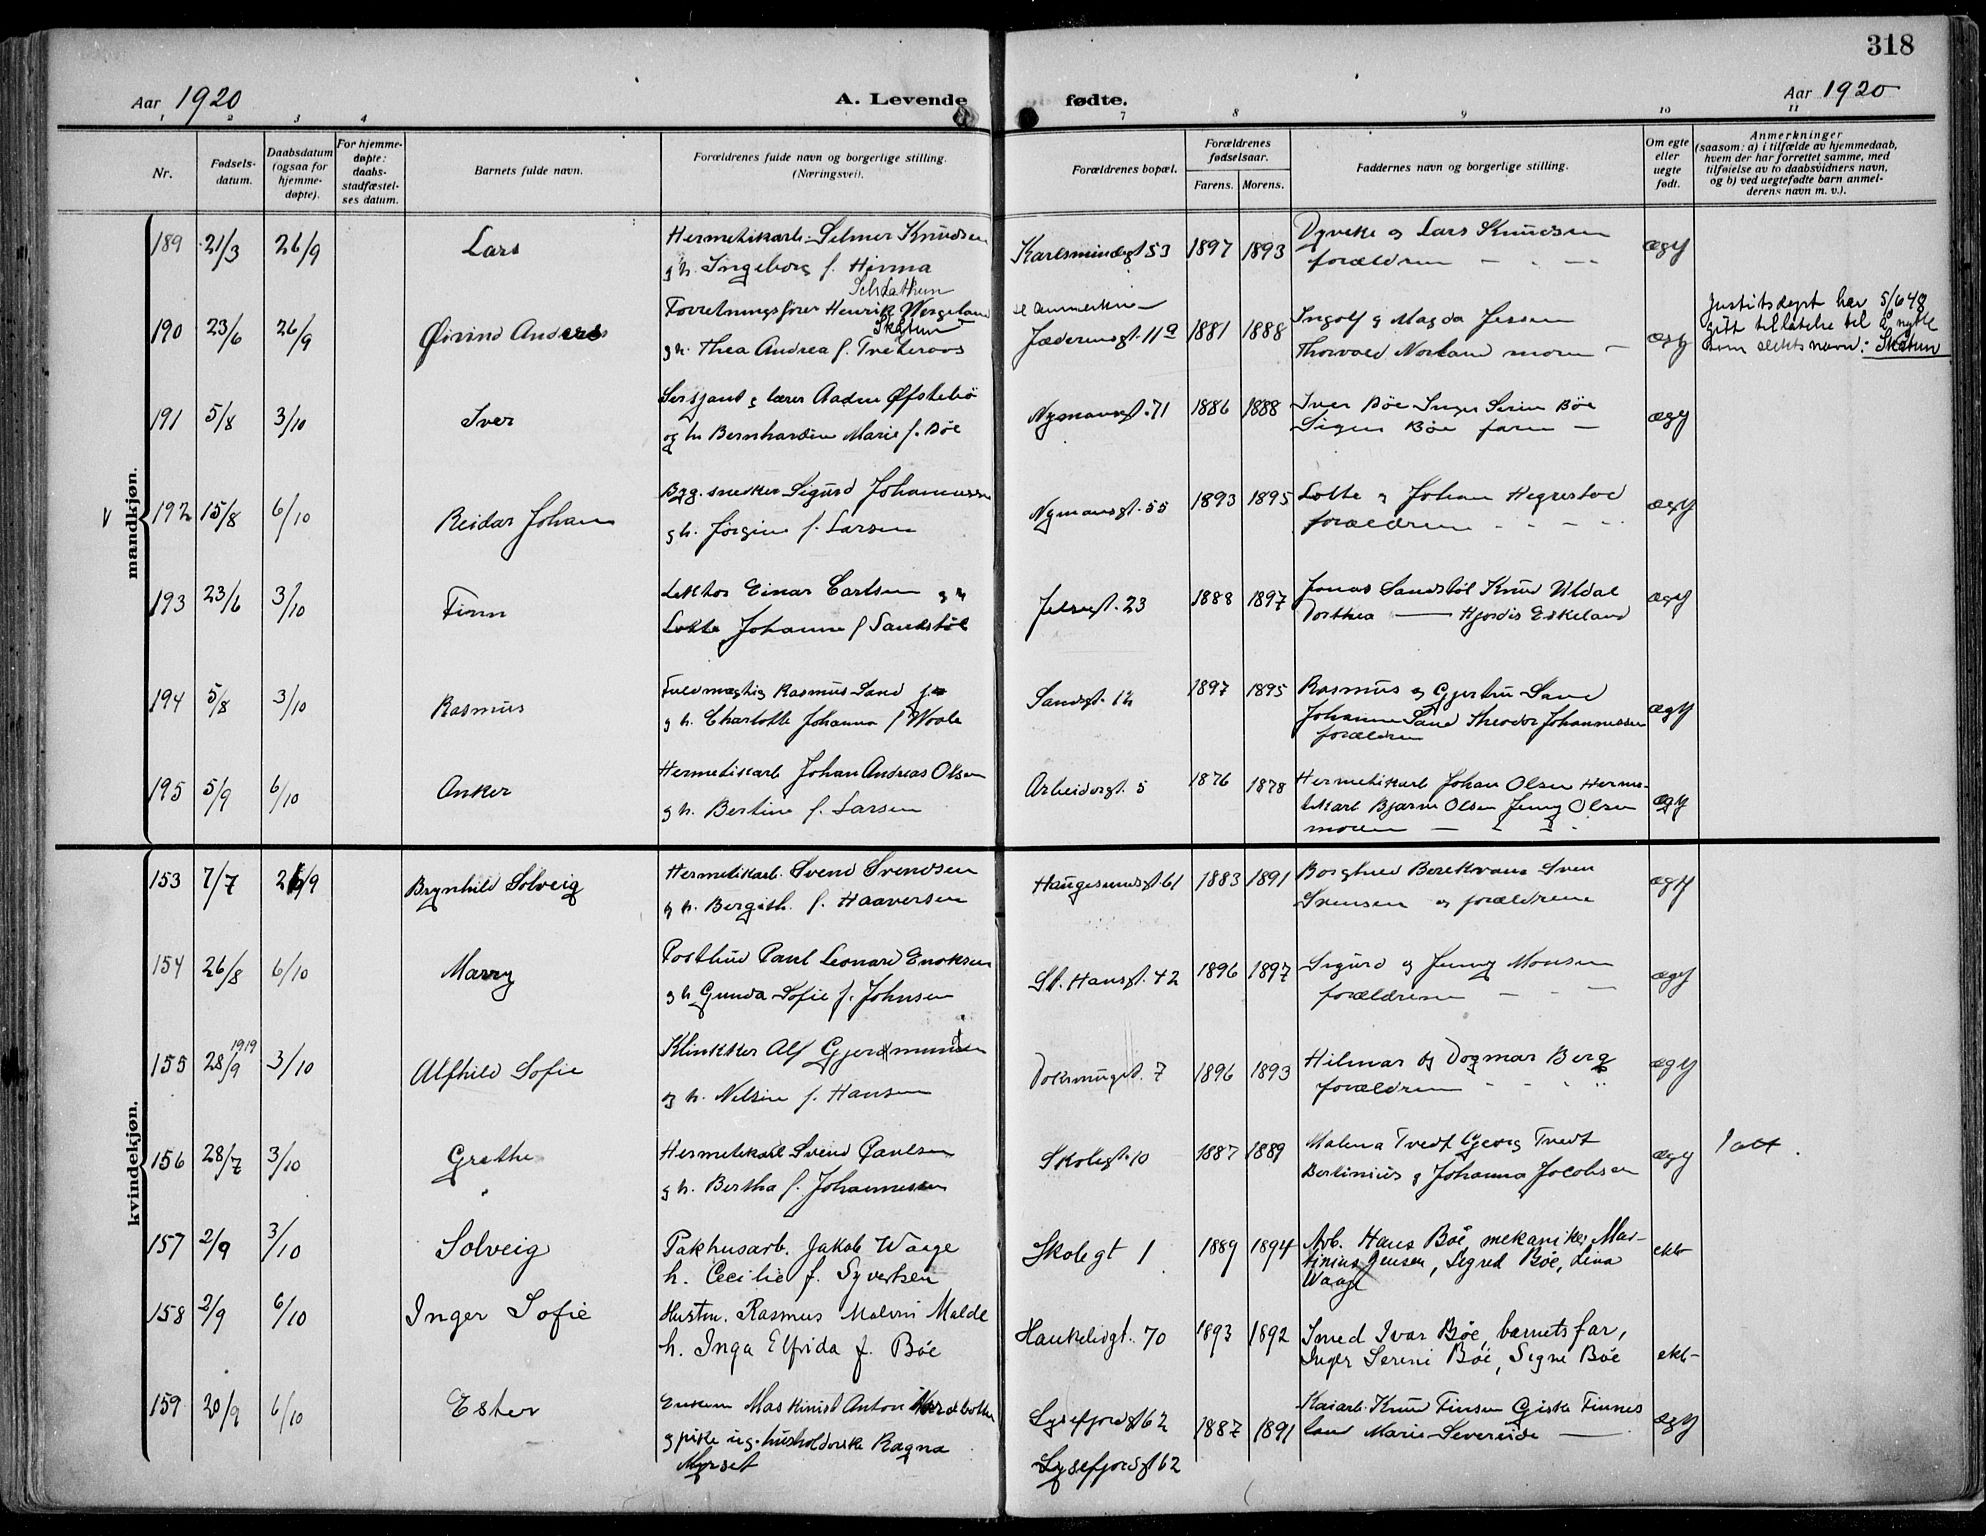 318
Aar 1920
A. Levende fødte.
Aar 1920
1 2 3 4 7 8 9 10 11
Nr.
Fødsels-
datum.
Daabsdatum
(ogsaa for
hjemme-
døpte).
For hjemme-
døpte:
daabs-
stadfæstel-
ses datum.
Barnets fulde navn.
Forældrenes fulde navn og borgerlige stilling.
(Næringsvei).
Forældrenes bopæl.
Forældrenes
fødselsaar.
Farens. Morens.
Faddernes navn og borgerlige stilling.
Om egte
eller
uegte
født.
Anmerkninger
(saasom: a) i tilfælde av hjemmedaab,
hvem der har forrettet samme, med
tilføielse av to daabsvidners navn,
og b) ved uegtefødte barn anmel-
derens navn m. v.).
mandkjøn.
189 21/3 26/9 Lars
Hermetikarb. Selmer Knudsen
g h. Ingeborg f. Hinna
Karlsmindegt 53 1897 1893
Dyveke og Lars Knudsen
forældren
ægt
190 23/6 26/9 Øivind Anders
Forretningsfører Henrik Wergeland
Skåtun
g h. Thea Andrea f. Tveteraas
Jæderensgt. 11a 1881 1888
Ingolf g Magda Jessen
Thorvald Norland moren
ægt
Justitsdept har 5/6 48
gitt tillatelse til å nytte
som slektsnavn: Skåtun
191 5/8 3/10 Iver
Sersjant g lærer Aadne Øfstebø
og h. Bernhardine Marie f. Bøe
Nymansgt. 71 1886 1888
Iver Bøe Inger Serine Bøe
Signe Bøe faren
ægt
V 192 15/8 6/10 Reidar Johan
Byg. snedker Sigurd Johannessen
g h. Jørgine f. Larsen
Nymansgt. 55 1893 1895
Lotte g Johan Hegrestad
forældrene
ægt
193 23/6 3/10 Finn
Lektor Einar Carlsen g h
Lotte Johanne f Sandstøl
Jelsagt. 23 1888 1897
Jonas Sandstøl Knud Uldal
Dorthea — Hjørdis Eskeland
ægt
194 5/8 3/10 Rasmus
Fuldmægtig Rasmus Sand
g h. Charlotte Johanna f Woole
Sandsgt. 12 1897 1895
Rasmus og Gjertru Sand
Johanne Sand Theodor Johannessen
forældren
ægt
195 5/9 6/10 Anker
Hermetikarb Johan Andreas Olsen
g h. Bertine f. Larsen
Arbeidergt. 5 1876 1878
Hermetikarb Johan Olsen Herme-
tikarb Bjarne Olsen Jenny Olsen
moren
ægt
kvindekjøn.
153 7/7 26/9 Brynhild Solveig
Hermetikarb. Svend Svendsen
g h. Bergith. f. Haaversen
Haugesundsgt. 61 1883 1891
Borghild Berekvam Sven
Svensen og forældrene
ægt
154 26/8 6/10 Marry
Postbud Paul Leonard Enoksen
g h Gunda Sofie f. Johnsen
St. Hansgt. 42 1896 1897
Sigurd og Jenny Monsen
forældrene
ægt
155 28/9 1919 3/10 Alfhild Sofie
Klinkker Alf Gjerdmundsen
og h. Nelsine f. Hansen
Doksmugt. 7 1896 1893
Hilmar og Dagmar Berg
forældren
ægt
156 28/7 3/10 Grethe
Hermetikarb Svend Paulsen
g h. Bertha f. Johannessen
Skolegt. 10 1887 1889
Malena Tvedt Georg Tvedt
Bertinius g Johanna Jacobsen
ægt
1 att.
157 2/9 3/10 Solveig
Pakhusarb. Jakob Waage
h. Cecilie f. Syvertsen
Skolegt 1 1889 1894
Arb. Hans Bøe, mekaniker Mar-
tinius Jensen, Sigred Bøe, Lina
Waage
ekte
158 2/9 6/10 Inger Sofie
Hustm. Rasmus Malvin Malde
h. Inga Elfrida f. Bøe
Haukeligt. 70 1893 1892
Smed Ivar Bøe, barnets far,
Inger Serine Bøe, Signe Bøe
ekte
159 20/9 6/10 Ester
Enkem Maskinist Anton
g pike ug. husholderske Ragna
Myrset
Lysefjordgt 62 1887 1891
Lysefjordgt 62
Kaiarb. Knud Finsen Giske Finnes
land Marie Severeide
ægt